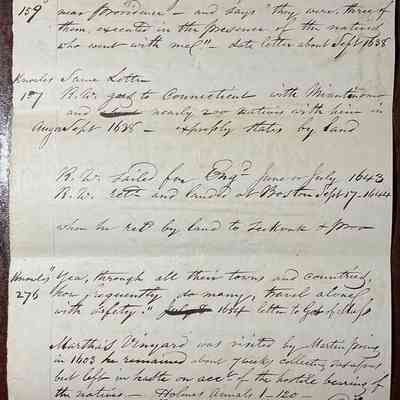 159 near Providence - and says "they were, three of
them, executed in the presence of the natives
who went with me" - date letter about Sept 1638
Knowles Same Letter
157 R.W. goes to Connecticut with Miantinomo
and nearly 200 natives with him in
Aug or Sept 1638 - expressly states by land
R.W. Sailed for Engd June or July 1643
R.W. retd and landed at Boston Sept 17-1644
when he retd by land to Seekonk & Prov
Knowles "Yea, through all their towns and countries,
276 how frequently do many, travel alone
with safety." 1654 letter to Gov of Mass
Martha's Vinyard was visited by Martin Pring
in 1603 he remained about 7 weeks collecting sassafras
but left in haste on acct of the hostile bearing of
the natives - Holmes Annals 1-120 -